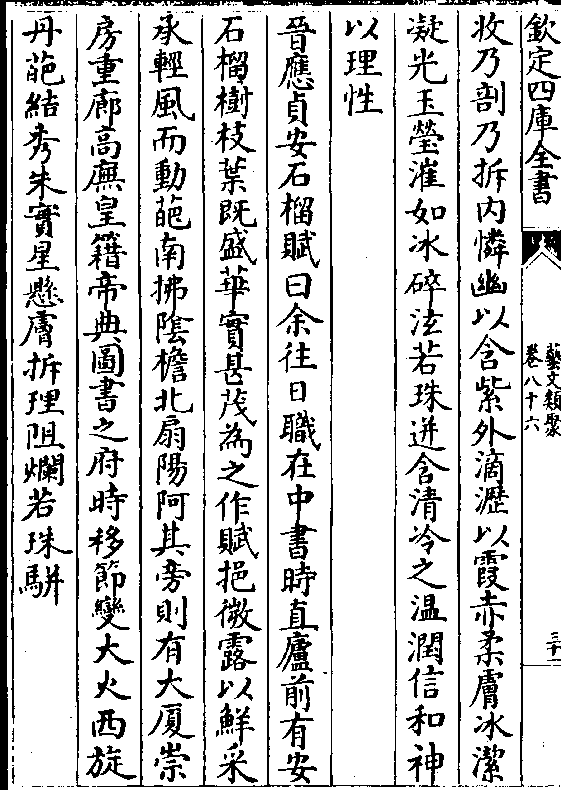 欽定四庫全書
藝文類聚
卷八十六
三十一
收乃剖乃拆内憐幽以含紫外滴瀝以霞赤柔膚冰潔
凝光玉瑩漼如冰碎泫若珠迸含清冷之温潤信和神
以理性
晉應貞安石榴賦曰余往日職在中書時直廬前有安
石榴樹枝葉既盛華實甚茂為之作賦挹微露以鮮采
承輕風而動葩南拂陰檐北扇陽阿其旁則有大厦崇
房重廊高廡皇籍帝典圖書之府時移節變大火西旋
丹葩結秀朱實星懸膚拆理阻爛若珠駢